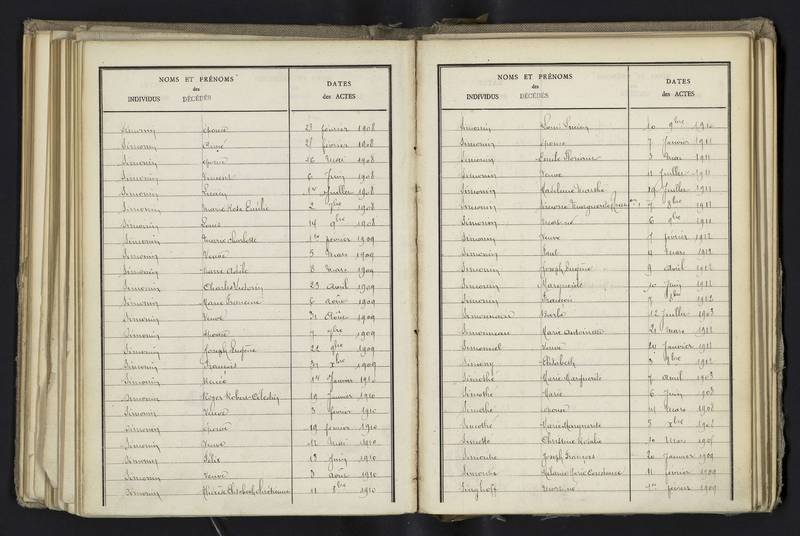 NOMS ET PRÉNOMS
des
INDIVIDUS DÉCÉDÉS
DATES
des ACTES
Simonin épouse 23 février 1908
Simonin Aimé 25 février 1908
Simonin épouse 16 Mai 1908
Simonin Vincent 6 Juin 1908
Simonin Lucien 1er Juillet 1908
Simonin Marie Rose Emilie 2 7bre 1908
Simonin Louis 14 9bre 1908
Simonin Marie Charlotte 1er février 1909
Simonin Veuve 5 Mars 1909
Simonin Marie Adèle 8 Mars 1909
Simonin Charles Victorin 23 Avril 1909
Simonin Marie Françoise 6 Août 1909
Simonin Veuve 31 Août 1909
Simonin épouse 7 7bre 1909
Simonin Joseph Eugène 22 9bre 1909
Simonin François 31 Xbre 1909
Simonin 14 Janvier 1910
Simonin Roger Robert Célestin 19 Janvier 1910
Simonin Veuve 3 février 1910
Simonin épouse 19 février 1910
Simonin Veuve 12 Mai 1910
Simonin Félix 13 Juin 1910
Simonin Veuve 3 Août 1910
Simonin Marie Elisabeth Chrétienne 11 8bre 1910
NOMS ET PRÉNOMS
des
INDIVIDUS DÉCÉDÉS
DATES
des ACTES
Simonin Louis Lucien 10 9bre 1910
Simonin épouse 7 Janvier 1911
Simonin Emile 3 Mars 1911
Simonin Veuve 11 Juillet 1911
Simonin Madeleine Marthe 19 Juillet 1911
Simonin Marguerite 7 8bre 1911
Simonin Mort-né 6 9bre 1911
Simonin Veuve 7 février 1912
Simonin Paul 4 Mars 1912
Simonin Joseph Eugène 9 Avril 1912
Simonin Marguerite 10 Juin 1912
Simonin François 7 8bre 1912
Barbe 12 Juillet 1903
Simonneau Marie Antoinette 21 Mars 1912
Simonnel Veuve 24 Janvier 1911
Simony Elisabeth 3 9bre 1912
Simothé Marie Marguerite 7 Avril 1903
Simothé Marie 6 Juin 1903
Simothe épouse 14 Mars 1908
Simothe Marie Marguerite 5 Xbre 1908
Christine Rosalie 10 Mars 1908
Simouthe Joseph François 20 Janvier 1909
Simouthe Mélanie Marie Constance 11 février 1909
Singhoff Mort-né 1er février 1909